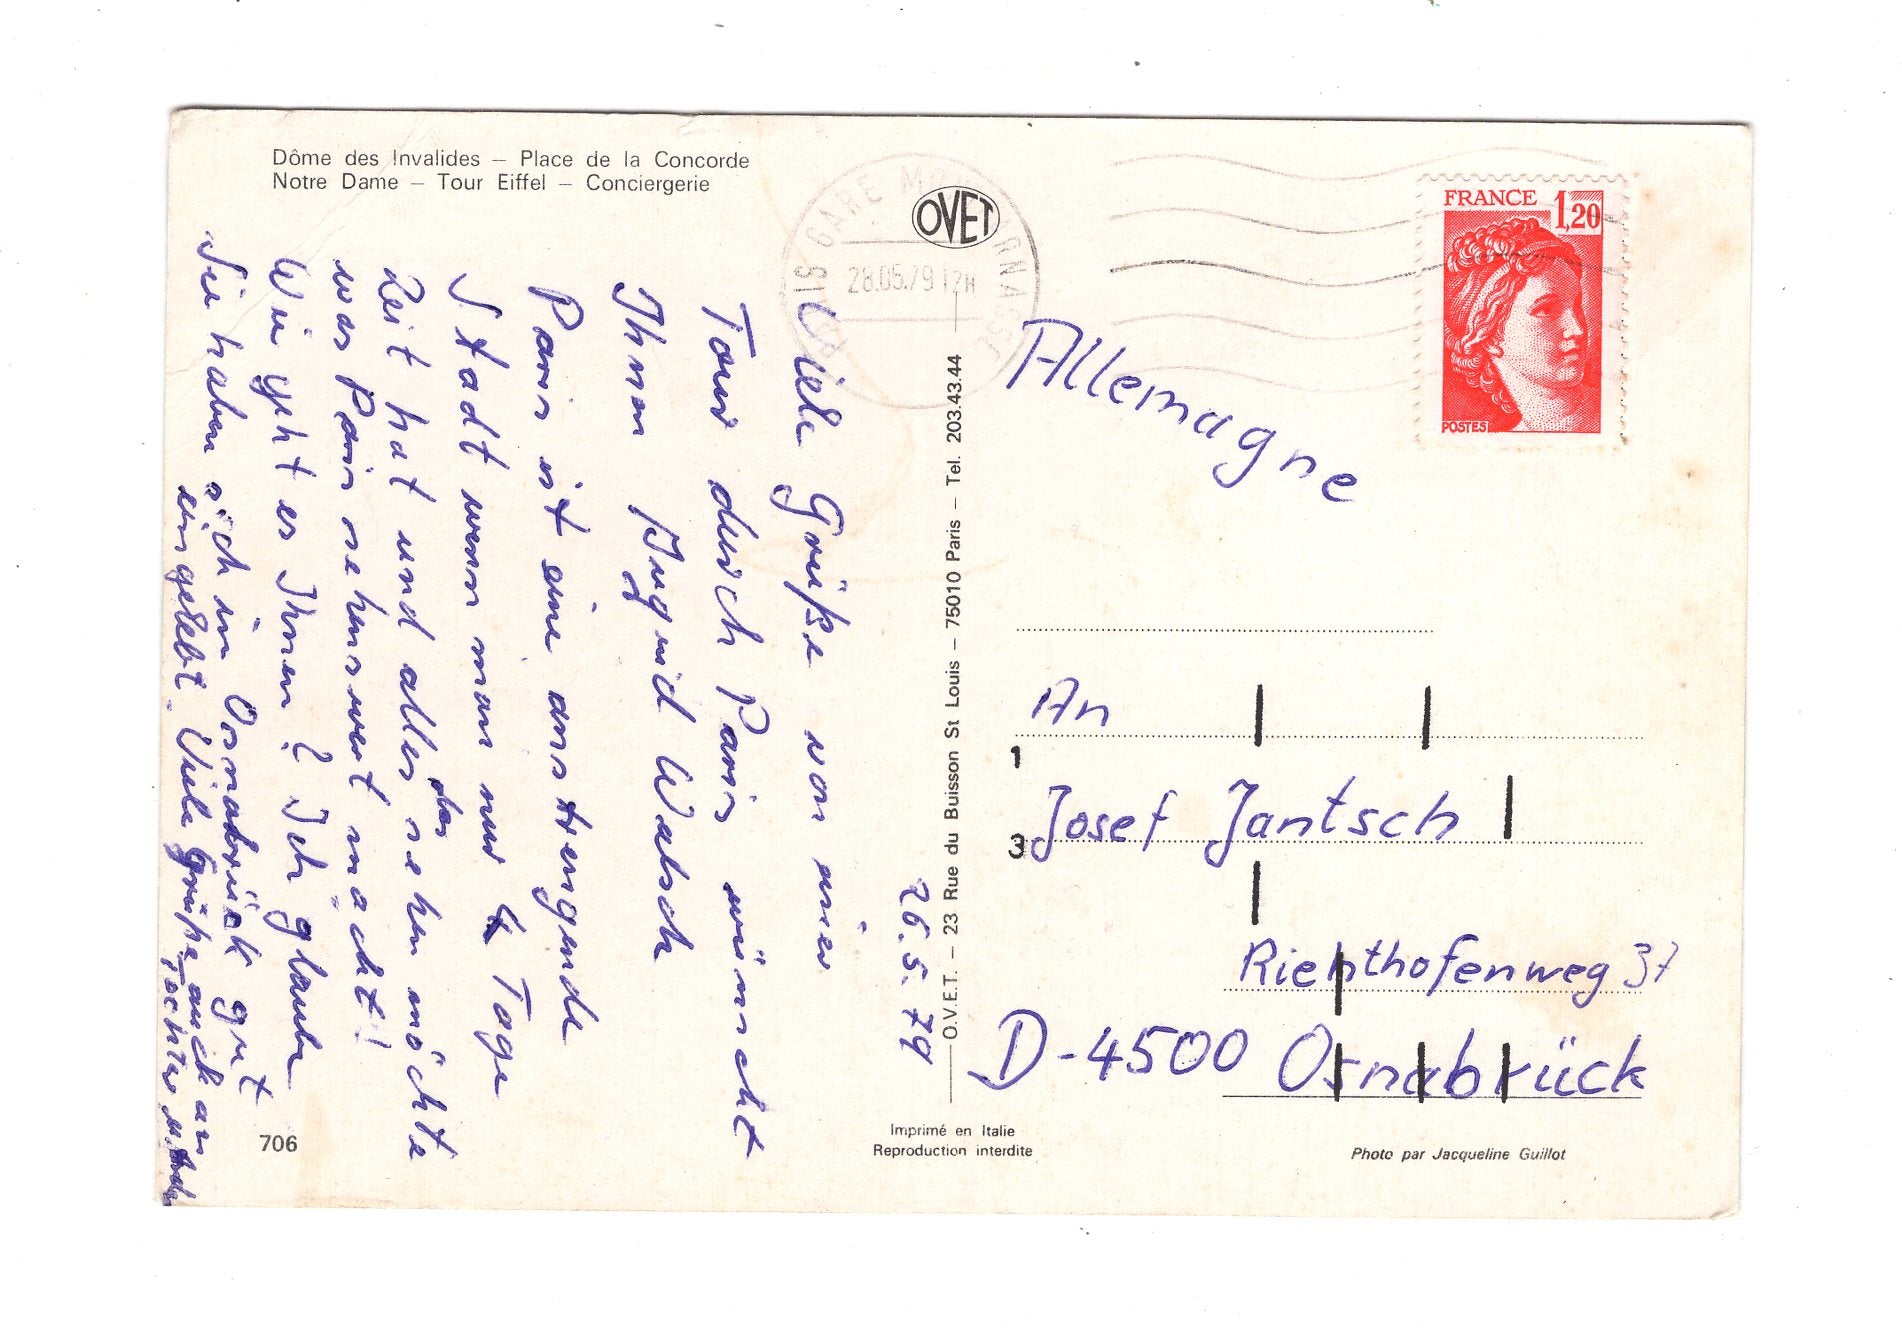 Dôme des Invalides – Place de la Concorde
Notre Dame – Tour Eiffel – Conciergerie
OVET
28.05.79 12H
FRANCE 1,20
POSTES
26.5.79
Viele Grüße von einer
Tour durch Paris wünscht
Ihnen
Paris ist eine anstrengende
Stadt wenn man nur 4 Tage
Zeit hat und alles das sehen möchte
was Paris sehenswert macht!
Wie geht es Ihnen? Ich glaube
Sie haben sich in Osnabrück gut
eingelebt. Viele Grüße auch an
Tochter u.
O.V.E.T. – 23 Rue du Buisson St Louis – 75010 Paris – Tel. 203.43.44
Allemagne
An
1
Josef Jantsch
3
Richthofenweg 37
D-4500 Osnabrück
706
Imprimé en Italie
Reproduction interdite
Photo par Jacqueline Guillot